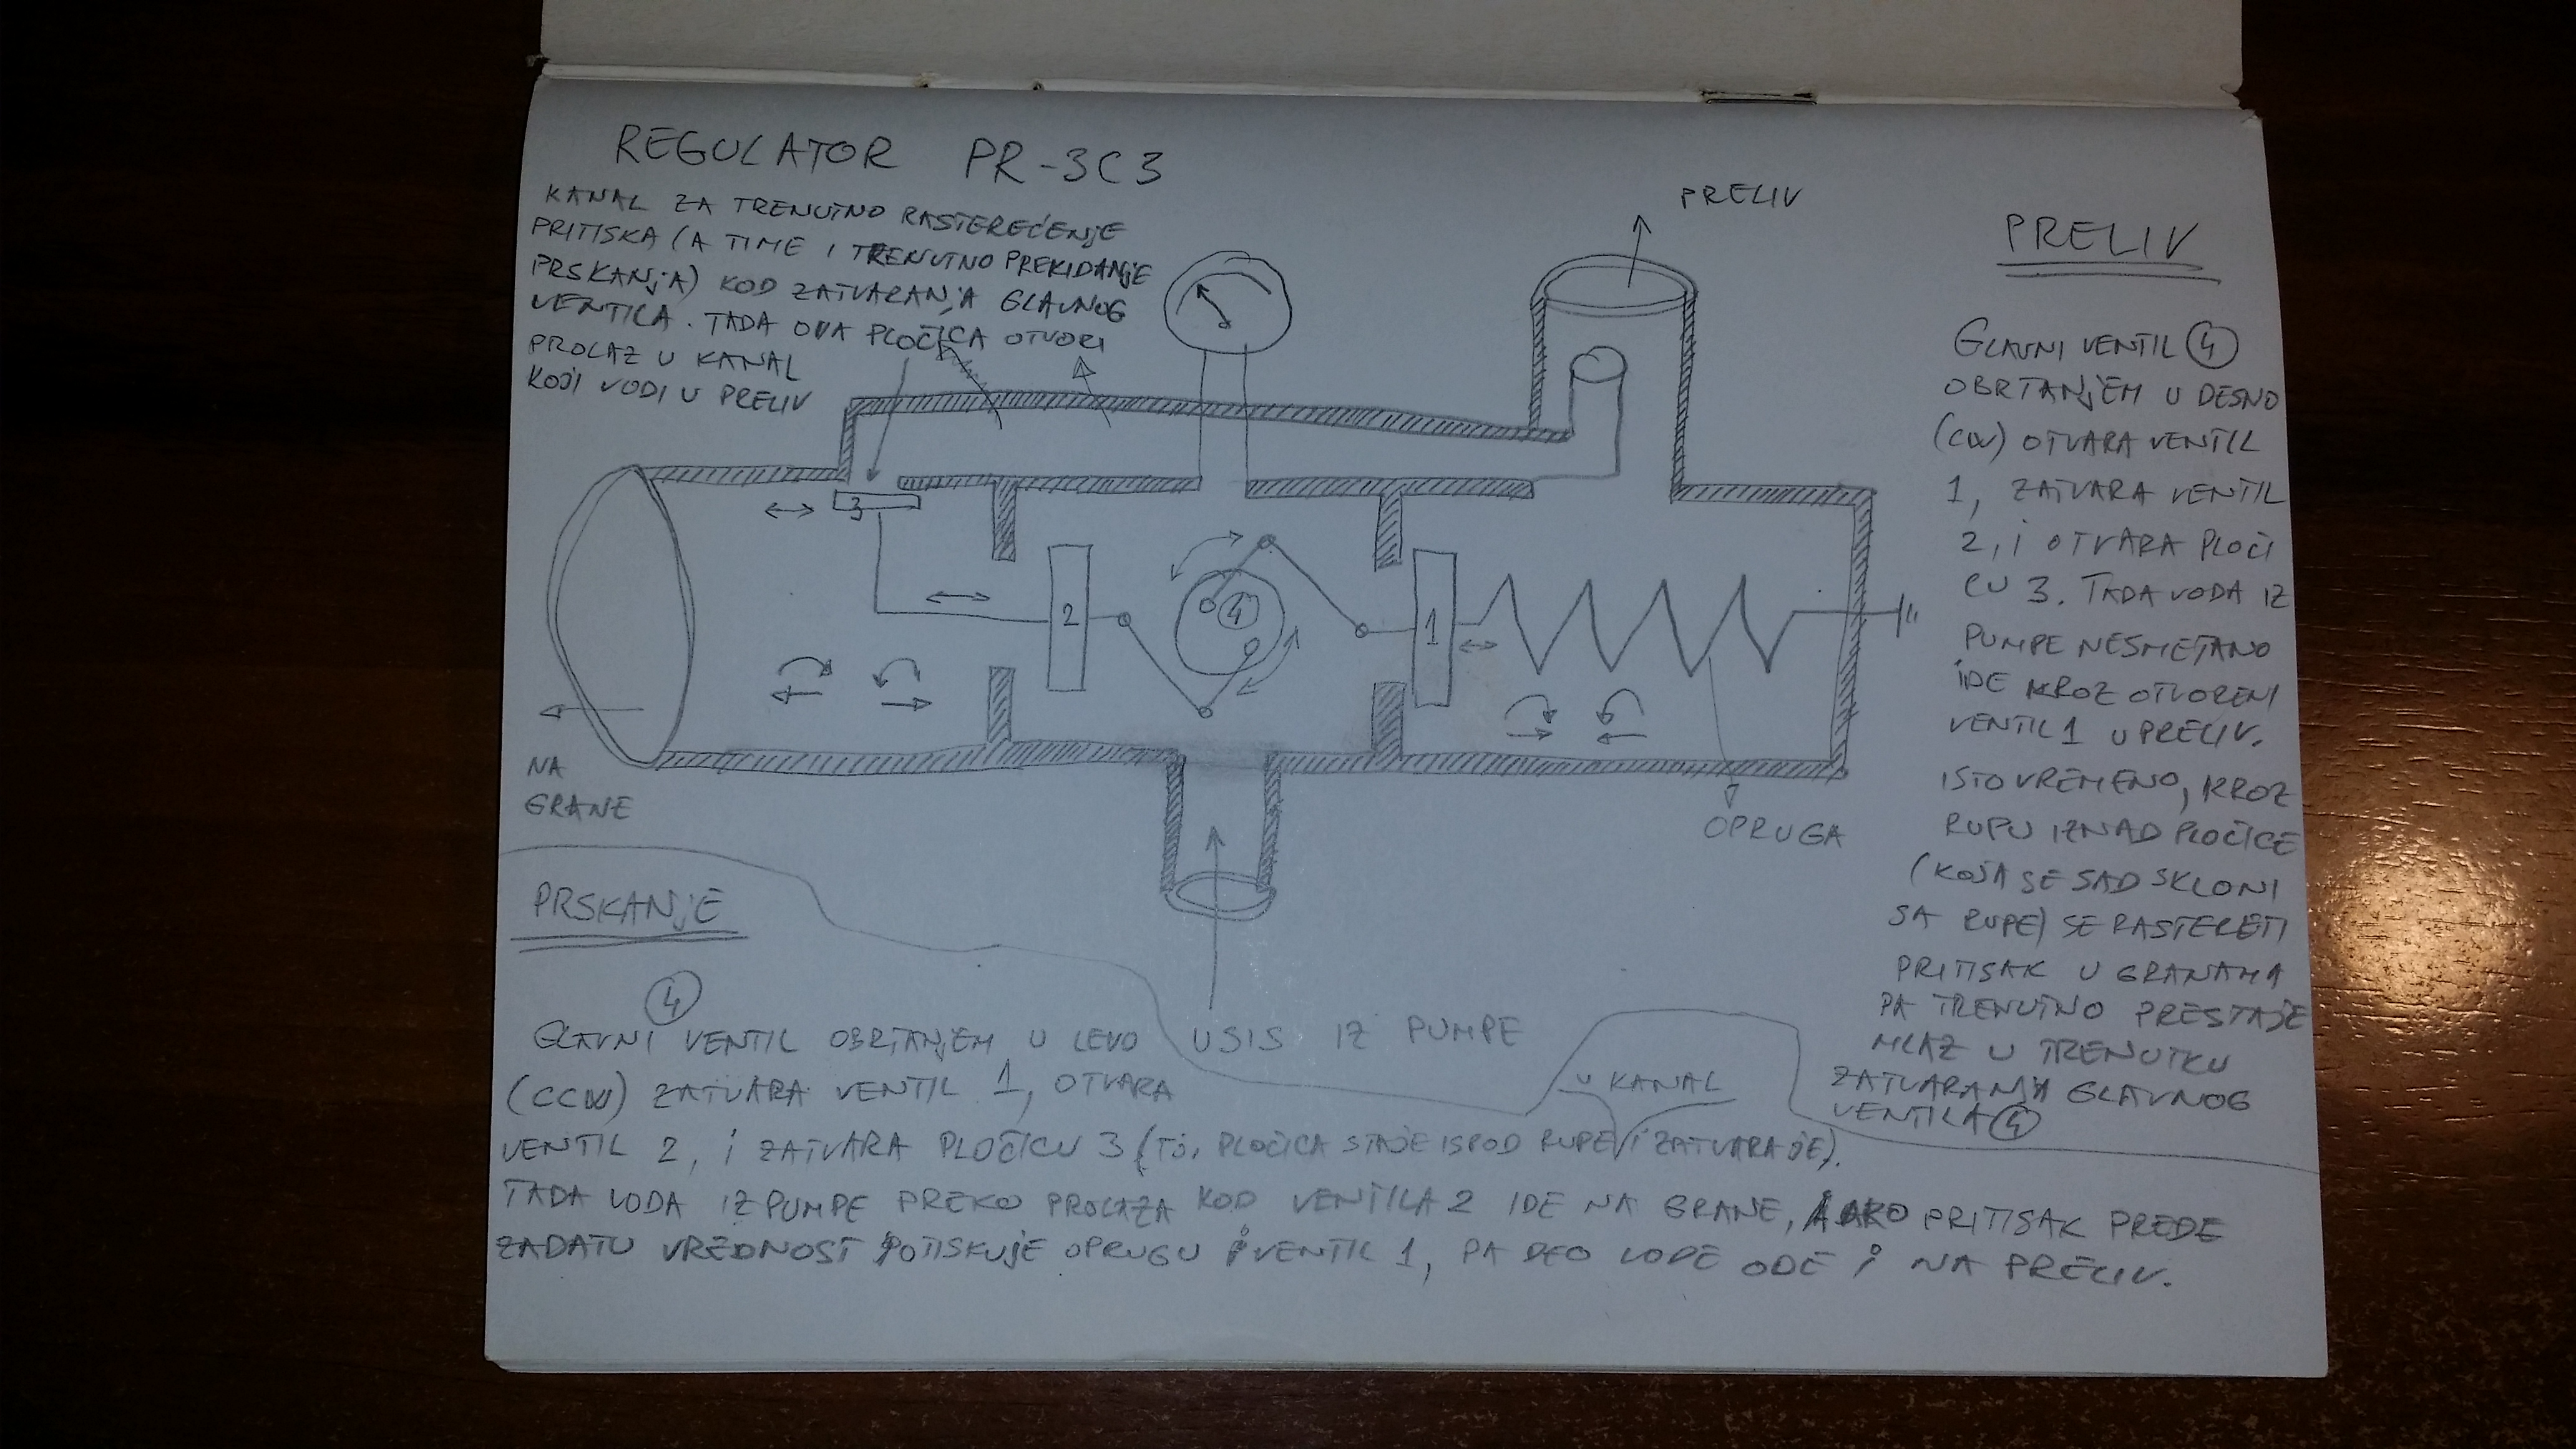 REGULATOR PR-3C3
KANAL ZA TRENUTNO RASTEREĆENJE
PRITISKA (A TIME I TRENUTNO PREKIDANJE
PRSKANJA) KOD ZATVARANJA GLAVNOG
VENTILA. TADA OVA PLOČICA OTVORI
PROLAZ U KANAL
KOJI VODI U PRELIV
PRELIV
3
2
4
1
NA
GRANE
OPRUGA
USIS IZ PUMPE
PRELIV
GLAVNI VENTIL 4
OBRTANJEM U DESNO
(CW) OTVARA VENTIL
1, ZATVARA VENTIL
2, I OTVARA PLOČI
CU 3. TADA VODA IZ
PUMPE NESMETANO
IDE KROZ OTVORENI
VENTIL 1 U PRELIV.
ISTOVREMENO, KROZ
RUPU IZNAD PLOČICE
(KOJA SE SAD SKLONI
SA RUPE) SE RASTERETI
PRITISAK U GRANAMA
PA TRENUTNO PRESTAJE
MLAZ U TRENUTKU
ZATVARANJA GLAVNOG
VENTILA 4
PRSKANJE
4
GLAVNI VENTIL OBRTANJEM U LEVO
(CCW) ZATVARA VENTIL 1, OTVARA
U KANAL
VENTIL 2, I ZATVARA PLOČICU 3 (TJ. PLOČICA STAJE ISPOD RUPE I ZATVARA JE).
TADA VODA IZ PUMPE PREKO PROLAZA KOD VENTILA 2 IDE NA GRANE, A AKO PRITISAK PREĐE
ZADATU VREDNOST POTISKUJE OPRUGU I VENTIL 1, PA DEO VODE ODE I NA PRELIV.